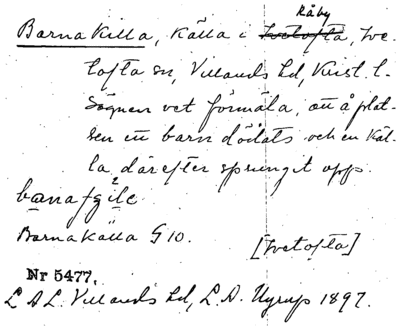 Råby
Barnakilla, källa i Ivetofta, Ive-
tofta sn, Villands hd, Krist. l.
Sägnen vet förmäla, att å plat-
sen ett barn dödats och en käl-
la därefter sprungit opp.
Barnakälla G 10.
[Ivetofta]
Nr 5477.
L A L. Villands hd, L. A. Ugrup 1897.